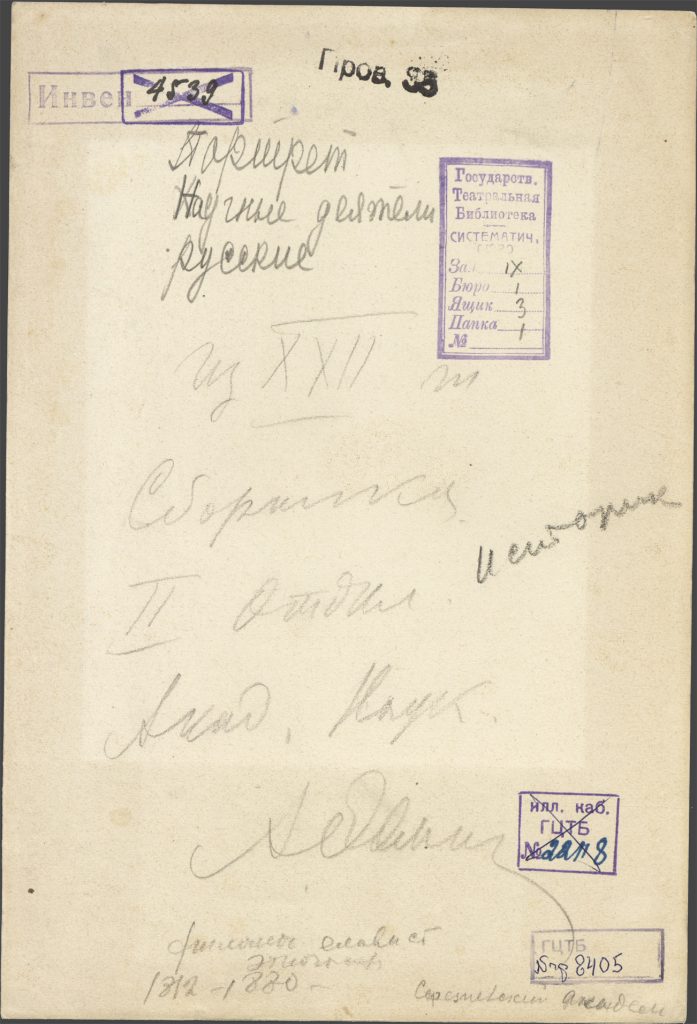 Пров. 85
Инвен 4539
Портрет
Научные деятели
русские
Государств.
Театральная
Библиотека
СИСТЕМАТИЧ.
Зал IX
Бюро 1
Ящик 3
Папка 1
№
из XXII т
Сборника
историк
II Отдел.
Акад. Наук.
илл. каб.
ГЦТБ
№ 22118
филолог славист
этнограф
1812 - 1880 -
ГЦТБ
8405
Срезневский академ